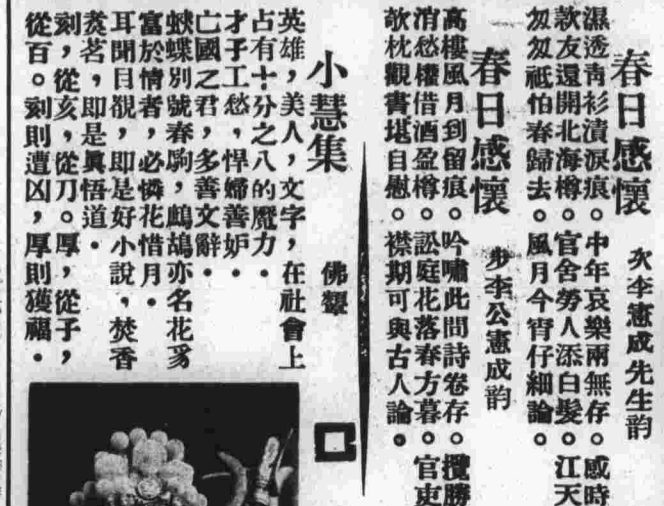 春日感懷 次李憲成先生韵
濕透靑衫漬淚痕。中年哀樂兩無存。感時
款友還開北海樽。官舍勞人添白髮。江天
匆匆祇怕春歸去。風月今宵仔細論。
春日感懷 步李公憲成韵
高樓風月到留痕。吟嘯此間詩卷存。攬勝
消愁權借酒盈樽。訟庭花落春方暮。官吏
欹枕觀書堪自慰。襟期可與古人論。
小慧集 佛
英雄，美人，文字，在社會上
占有十分之八的魔力．
才子工愁，悍婦善妒．
亡國之君，多善文辭．
蛺蝶別號春駒，鷓鴣亦名花豸
富於情者，必憐花惜月．
耳聞目覩，即是好小說，焚香
煑茗，即是眞悟道．
刻，從亥，從刀。厚，從子，
從百。刻則遭凶，厚則獲福．